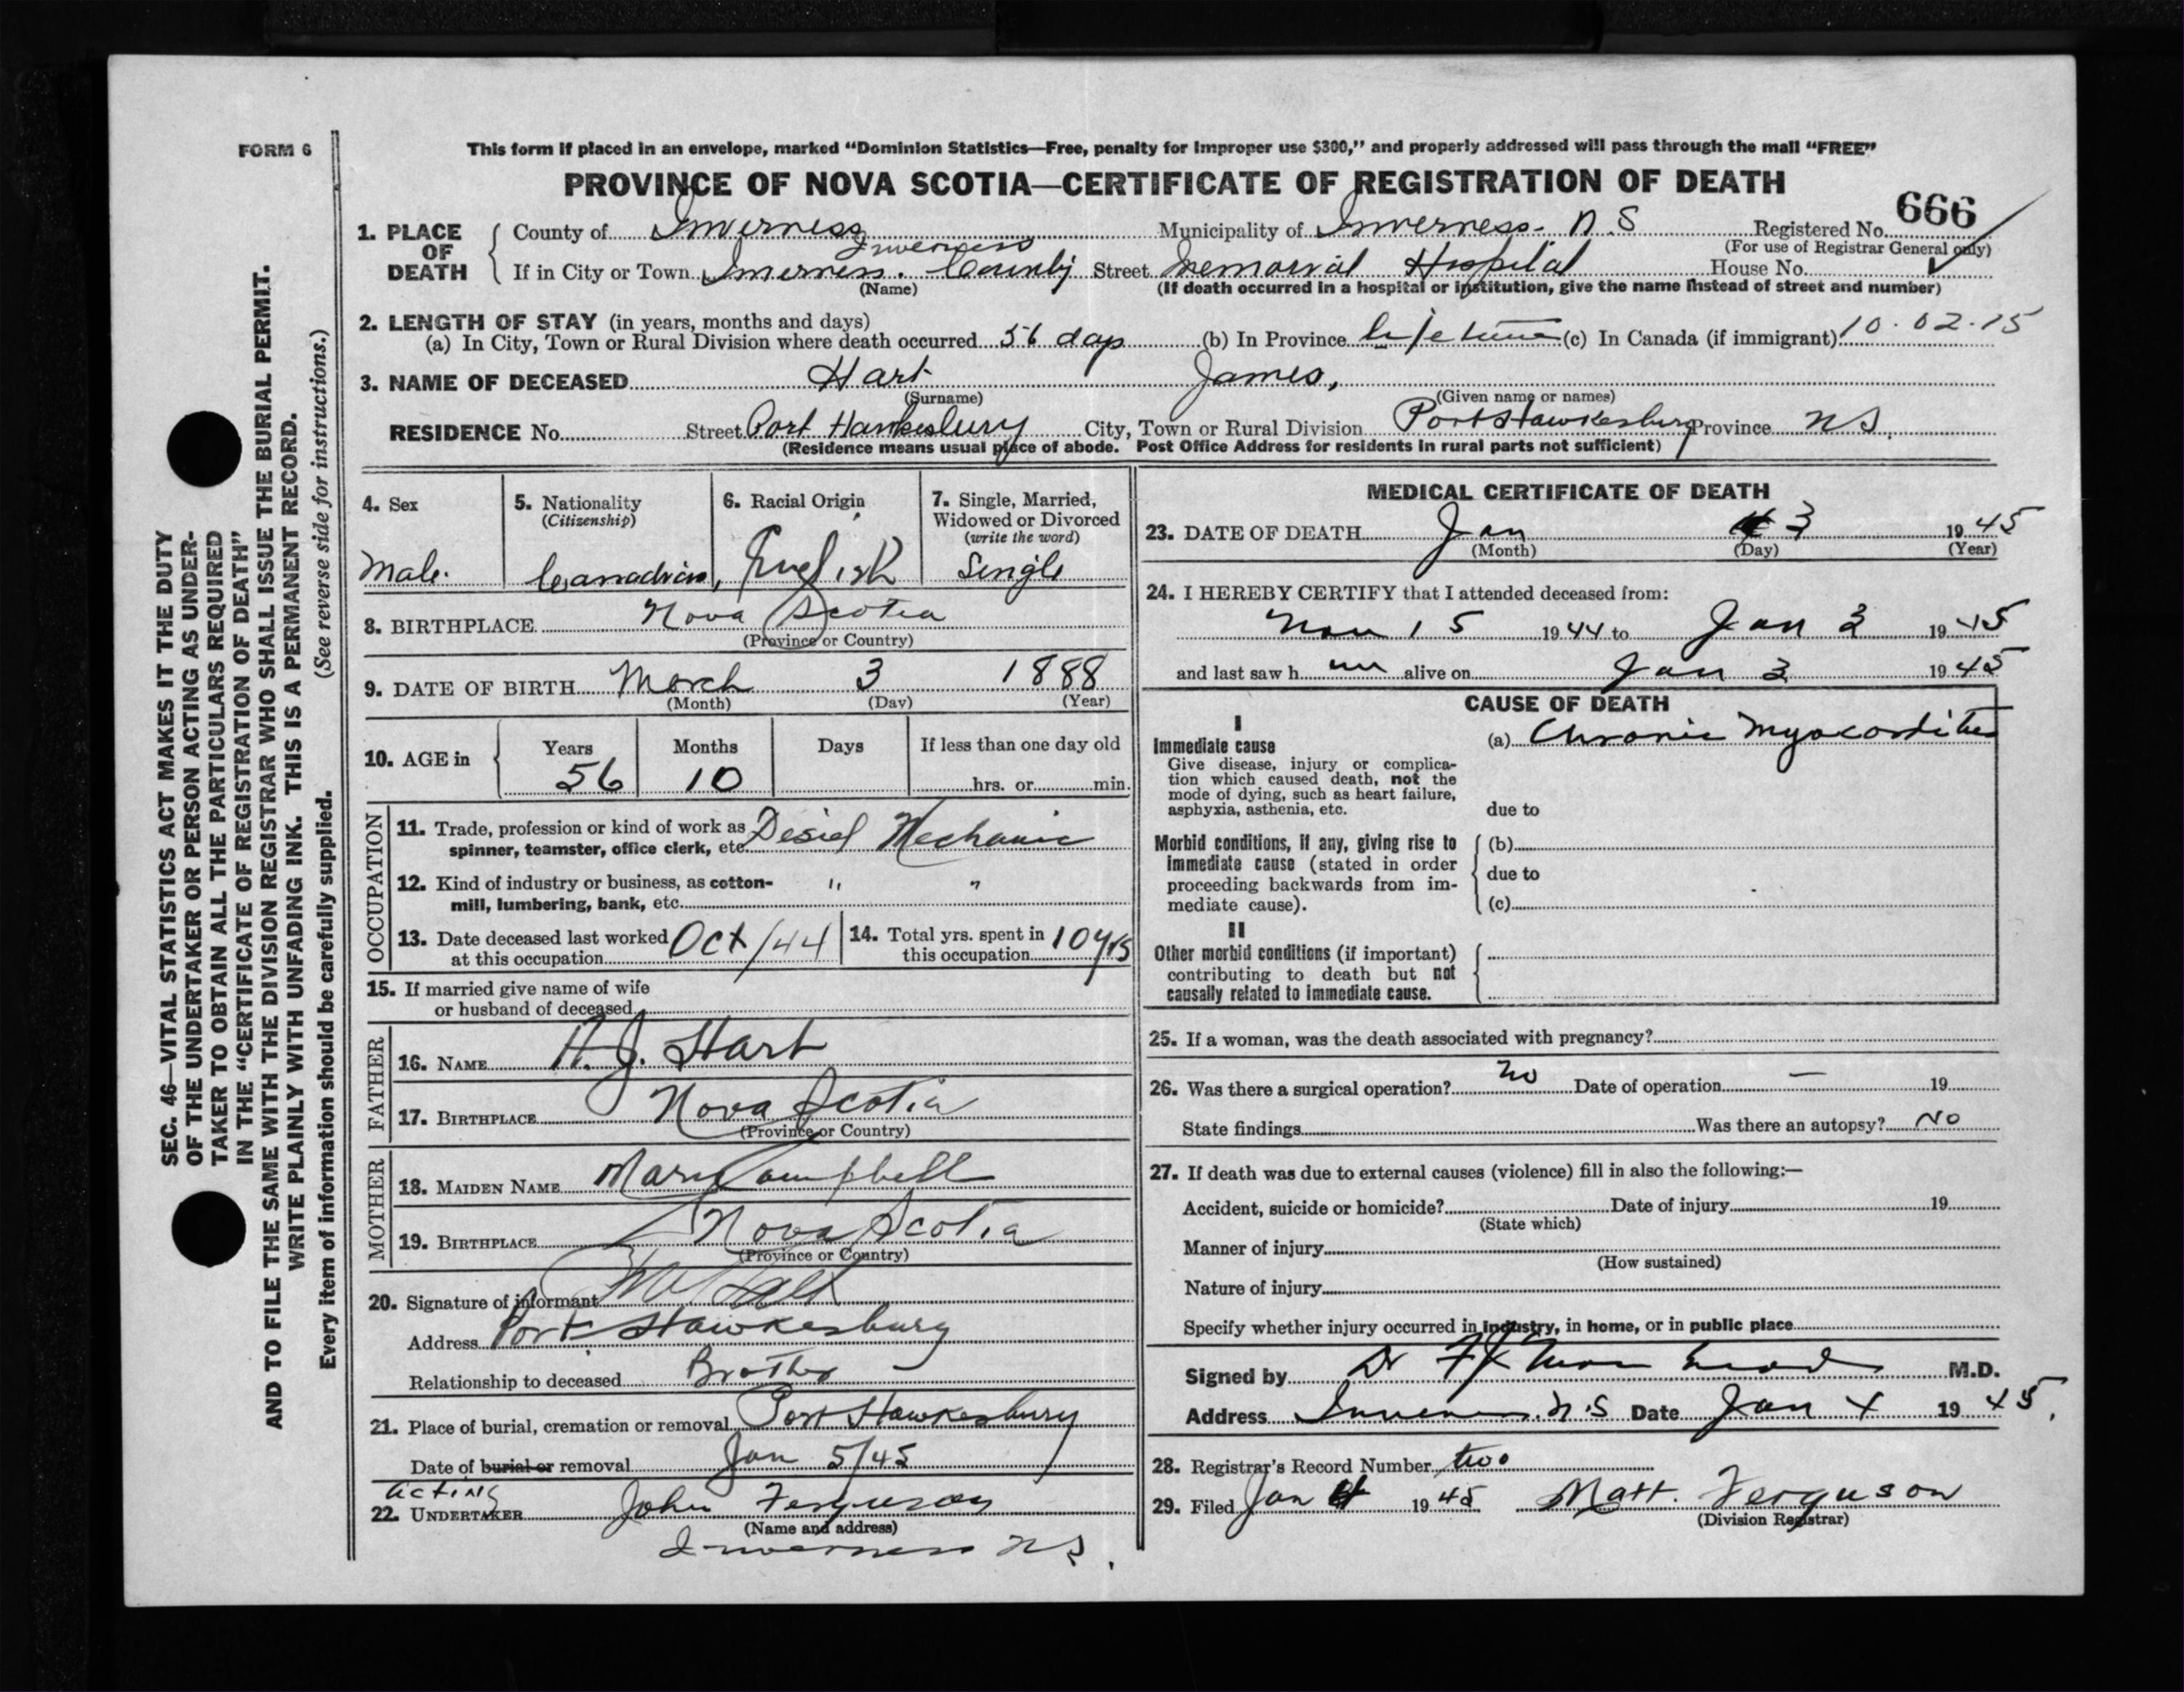 FORM 6
This form if placed in an envelope, marked “Dominion Statistics—Free, penalty for improper use $300,” and properly addressed will pass through the mail “FREE”
PROVINCE OF NOVA SCOTIA—CERTIFICATE OF REGISTRATION OF DEATH
666
1. PLACE OF DEATH
County of Inverness Municipality of Inverness. N.S Registered No.
(For use of Registrar General only)
Inverness
If in City or Town Inverness. County Street Memorial Hospital House No.
(Name) (If death occurred in a hospital or institution, give the name instead of street and number)
2. LENGTH OF STAY (in years, months and days)
(a) In City, Town or Rural Division where death occurred 56 days (b) In Province lifetime (c) In Canada (if immigrant) 10.02.15
3. NAME OF DECEASED Hart James,
(Surname) (Given name or names)
RESIDENCE No. Street Port Hawkesbury City, Town or Rural Division Port Hawkesbury Province NS.
(Residence means usual place of abode. Post Office Address for residents in rural parts not sufficient)
4. Sex
Male.
5. Nationality
(Citizenship)
Canadian,
6. Racial Origin
English
7. Single, Married,
Widowed or Divorced
(write the word)
Single
8. BIRTHPLACE Nova Scotia
(Province or Country)
9. DATE OF BIRTH March 3 1888
(Month) (Day) (Year)
10. AGE in
Years Months Days If less than one day old
56 10 hrs. or min.
OCCUPATION
11. Trade, profession or kind of work as
spinner, teamster, office clerk, etc. Desiel Mechanic
12. Kind of industry or business, as cotton-
mill, lumbering, bank, etc. " "
13. Date deceased last worked
at this occupation Oct/44
14. Total yrs. spent in
this occupation 10 yrs
15. If married give name of wife
or husband of deceased
FATHER
16. NAME J. Hart
17. BIRTHPLACE Nova Scotia
(Province or Country)
MOTHER
18. MAIDEN NAME Mary Campbell
19. BIRTHPLACE Nova Scotia
(Province or Country)
20. Signature of informant
Address Port Hawkesbury
Relationship to deceased Brother
21. Place of burial, cremation or removal Port Hawkesbury
Date of burial or removal Jan 5/45
Acting
22. UNDERTAKER John Ferguson
(Name and address)
Inverness NS.
MEDICAL CERTIFICATE OF DEATH
23. DATE OF DEATH Jan 3 1945
(Month) (Day) (Year)
24. I HEREBY CERTIFY that I attended deceased from:
Nov 15 1944 to Jan 3 1945
and last saw him alive on Jan 3 1945
CAUSE OF DEATH
I
Immediate cause
Give disease, injury or complica-
tion which caused death, not the
mode of dying, such as heart failure,
asphyxia, asthenia, etc.
(a) Chronic Myocarditis
due to
Morbid conditions, if any, giving rise to
immediate cause (stated in order
proceeding backwards from im-
mediate cause).
(b)
due to
(c)
II
Other morbid conditions (if important)
contributing to death but not
causally related to immediate cause.
25. If a woman, was the death associated with pregnancy?
26. Was there a surgical operation? No Date of operation — 19
State findings Was there an autopsy? No
27. If death was due to external causes (violence) fill in also the following:—
Accident, suicide or homicide? Date of injury 19
(State which)
Manner of injury
(How sustained)
Nature of injury
Specify whether injury occurred in industry, in home, or in public place
Signed by Dr M.D.
Address Inverness. N.S Date Jan 4 1945.
28. Registrar's Record Number two
29. Filed Jan 4 1945 Matt. Ferguson
(Division Registrar)
SEC. 46—VITAL STATISTICS ACT MAKES IT THE DUTY
OF THE UNDERTAKER OR PERSON ACTING AS UNDER-
TAKER TO OBTAIN ALL THE PARTICULARS REQUIRED
IN THE “CERTIFICATE OF REGISTRATION OF DEATH”
AND TO FILE THE SAME WITH THE DIVISION REGISTRAR WHO SHALL ISSUE THE BURIAL PERMIT.
WRITE PLAINLY WITH UNFADING INK. THIS IS A PERMANENT RECORD.
Every item of information should be carefully supplied. (See reverse side for instructions.)